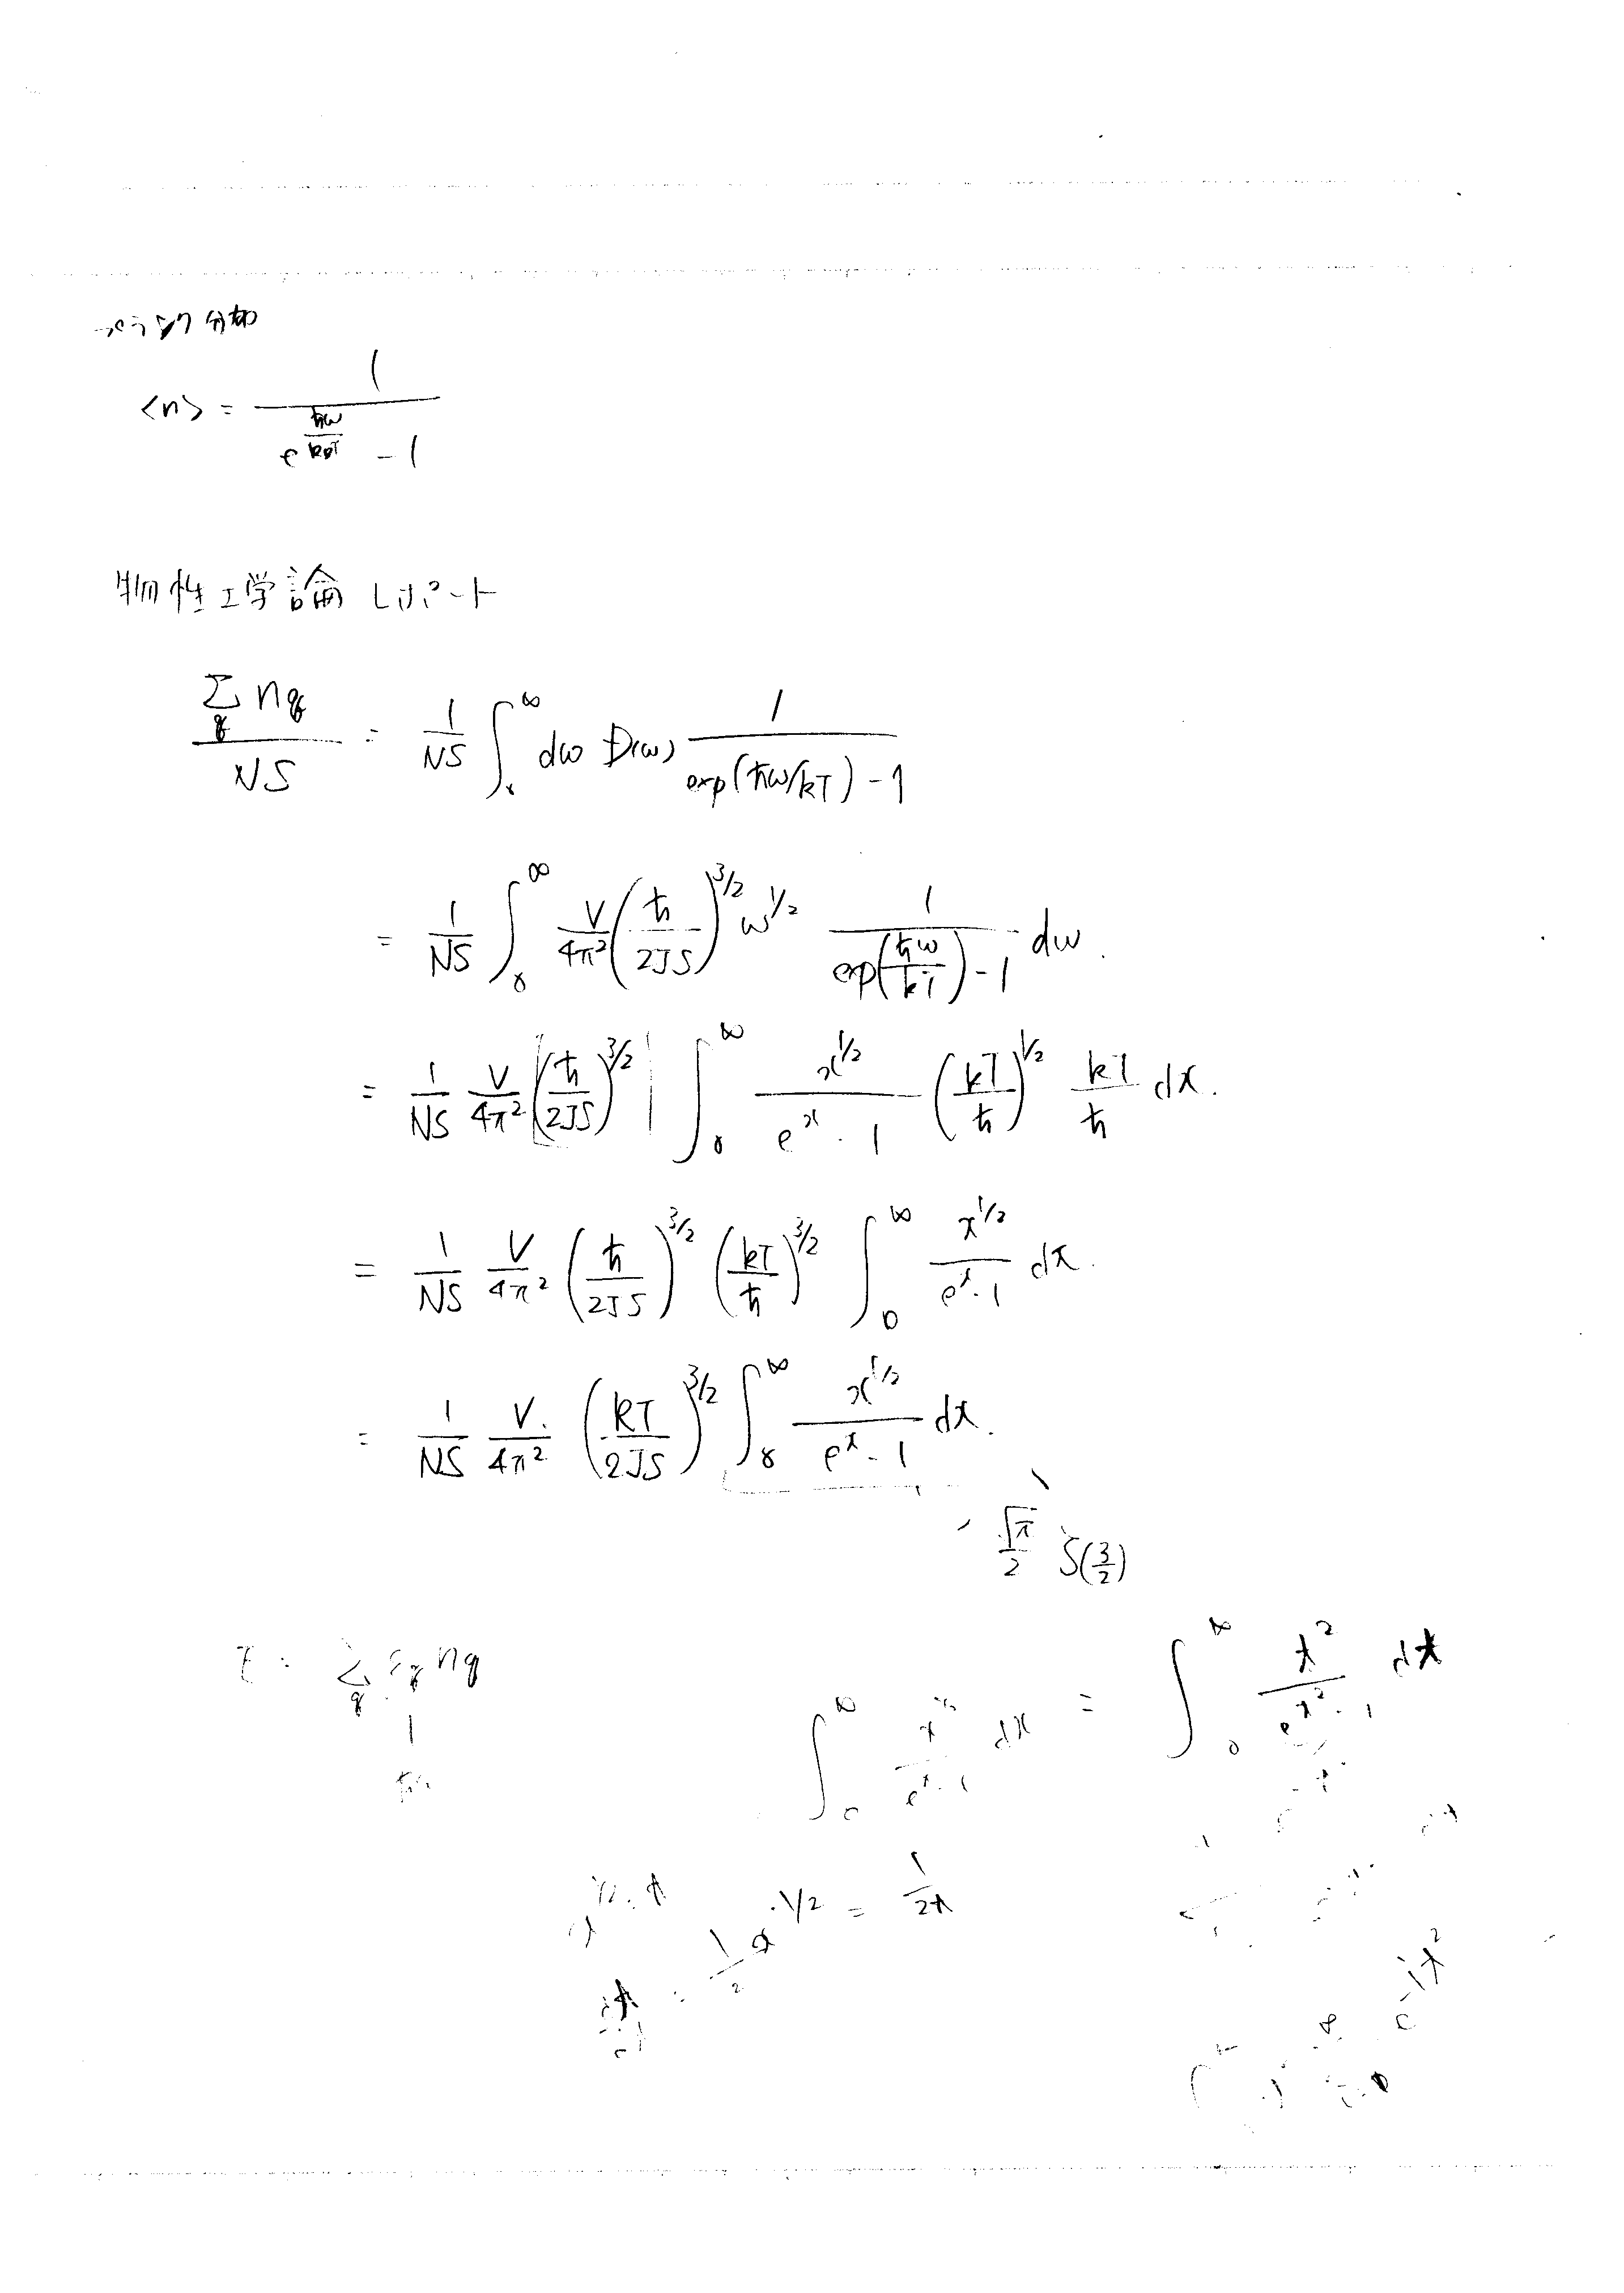 プランク分布
<n> = 1 / (e^{ħω/k_BT} - 1)
物性工学論 レポート
Σ_q n_q / NS = 1/NS ∫_0^∞ dω D(ω) 1 / (exp(ħω/kT) - 1)
= 1/NS ∫_0^∞ V/4π² (ħ/2JS)^{3/2} ω^{1/2} 1 / (exp(ħω/kT) - 1) dω.
= 1/NS V/4π² (ħ/2JS)^{3/2} ∫_0^∞ x^{1/2} / (e^x - 1) (kT/ħ)^{1/2} kT/ħ dx.
= 1/NS V/4π² (ħ/2JS)^{3/2} (kT/ħ)^{3/2} ∫_0^∞ x^{1/2} / (e^x - 1) dx.
= 1/NS V/4π² (kT/2JS)^{3/2} ∫_0^∞ x^{1/2} / (e^x - 1) dx.
√π/2 ζ(3/2)
Σ_q ε_q n_q
∫_0^∞ x^{1/2} / (e^x - 1) dx = ∫_0^∞ t² / (e^{t²} - 1) dt
x^{1/2} = t
= 1/2 x^{-1/2} = 1/2t